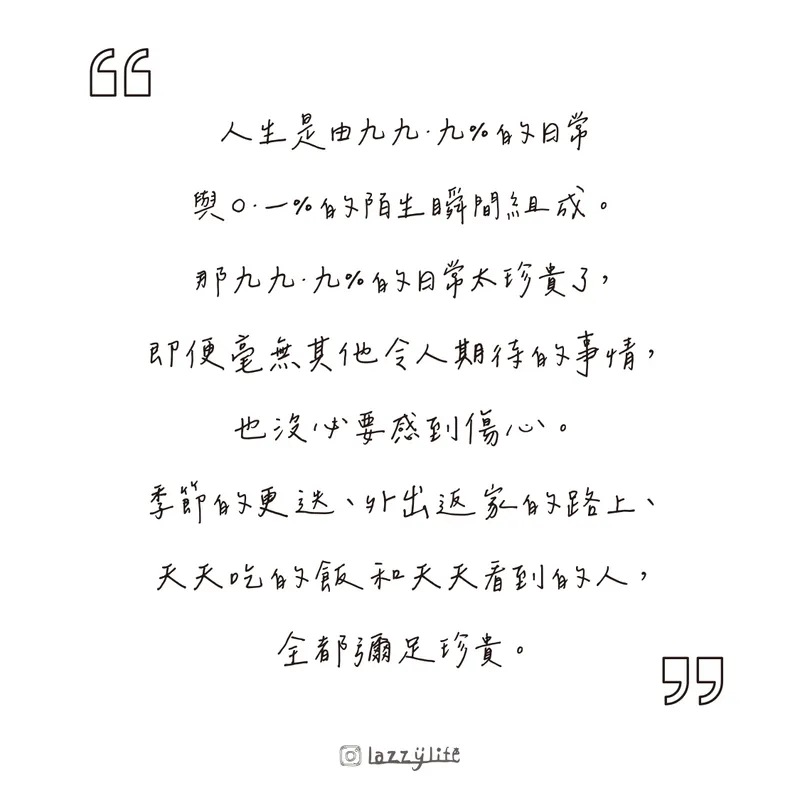 人生是由九九.九%的日常
與0.一%的陌生瞬間組成。
那九九.九%的日常太珍貴了，
即便毫無其他令人期待的事情，
也沒必要感到傷心。
季節的更迭、外出返家的路上、
天天吃的飯和天天看到的人，
全都彌足珍貴。
lazzylife